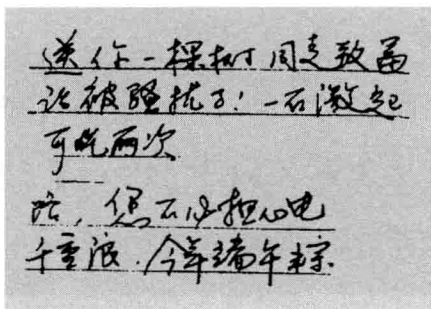 送你一棵树同走致富
话被骚扰了!一石激起
可吃两次
路,您不必担心电
千重浪.今年端午粽